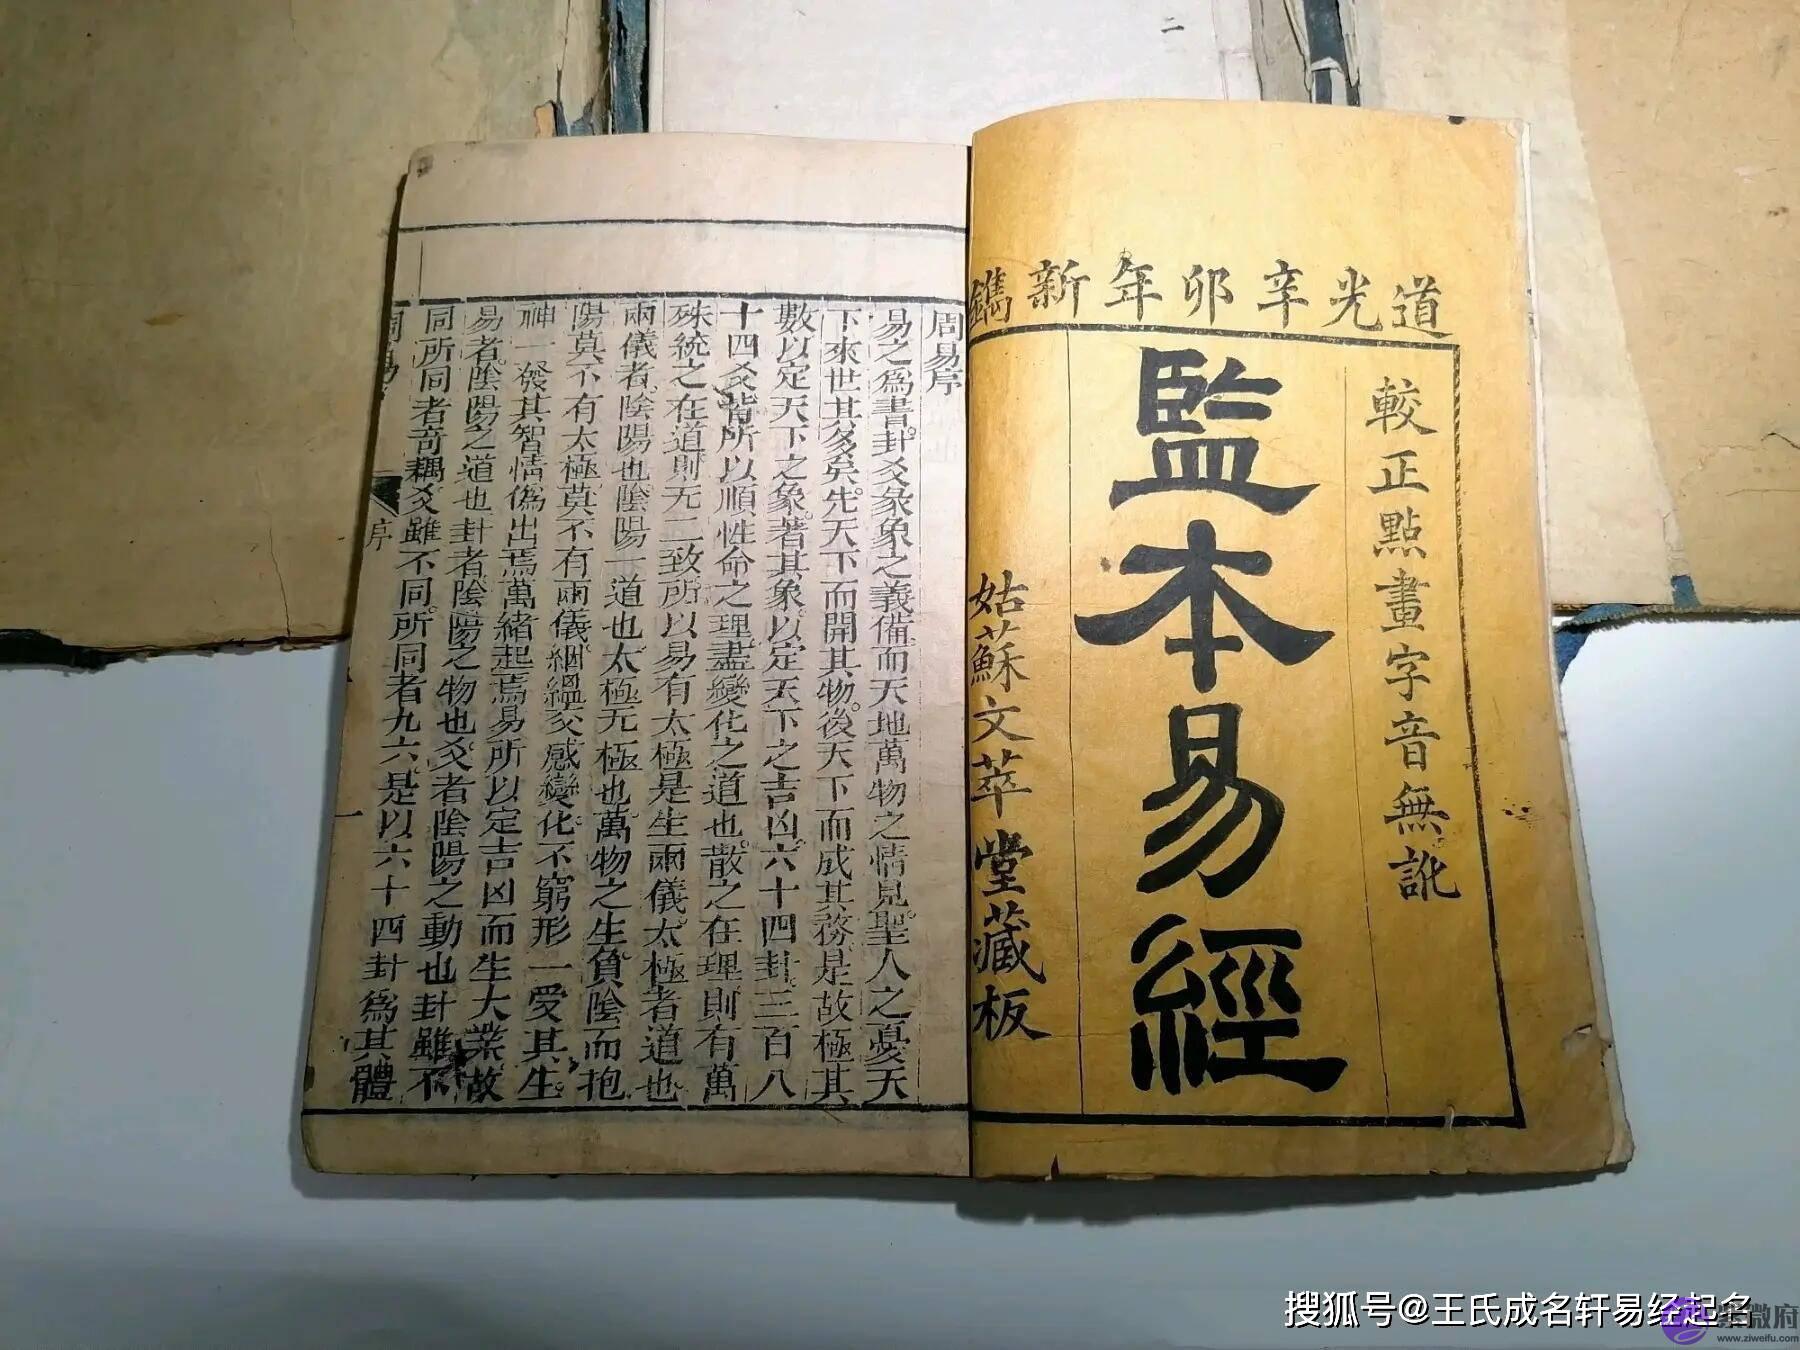 道光辛卯年新鐫
較正點畫字音無訛
監本易經
姑蘇文萃堂藏板
周易序
易之爲書卦爻彖象之義備而天地萬物之情見聖人之憂天
下來世其多矣先天下而開其物後天下而成其務是故極其
數以定天下之象著其象以定天下之吉凶六十四卦三百八
十四爻皆所以順性命之理盡變化之道也散之在理則有萬
殊統之在道則无二致所以易有太極是生兩儀太極者道也
兩儀者陰陽也陰陽一道也太極无極也萬物之生負陰而抱
陽莫不有太極莫不有兩儀絪縕交感變化不窮形一受其生
神一發其智情僞出焉萬緒起焉易所以定吉凶而生大業故
易者陰陽之道也卦者陰陽之物也爻者陰陽之動也卦雖不
同所同者奇耦爻雖不同所同者九六是以六十四卦爲其體
周易
序
一
二
搜狐号@王氏成名轩易经起名
微府
www.ziweifu.com